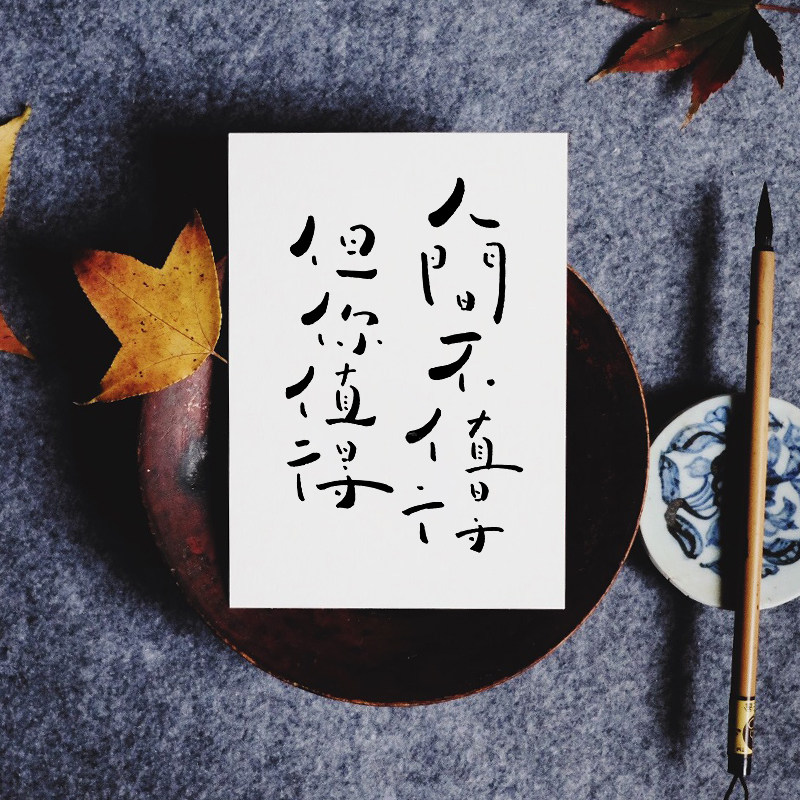 人間不值得
但你值得